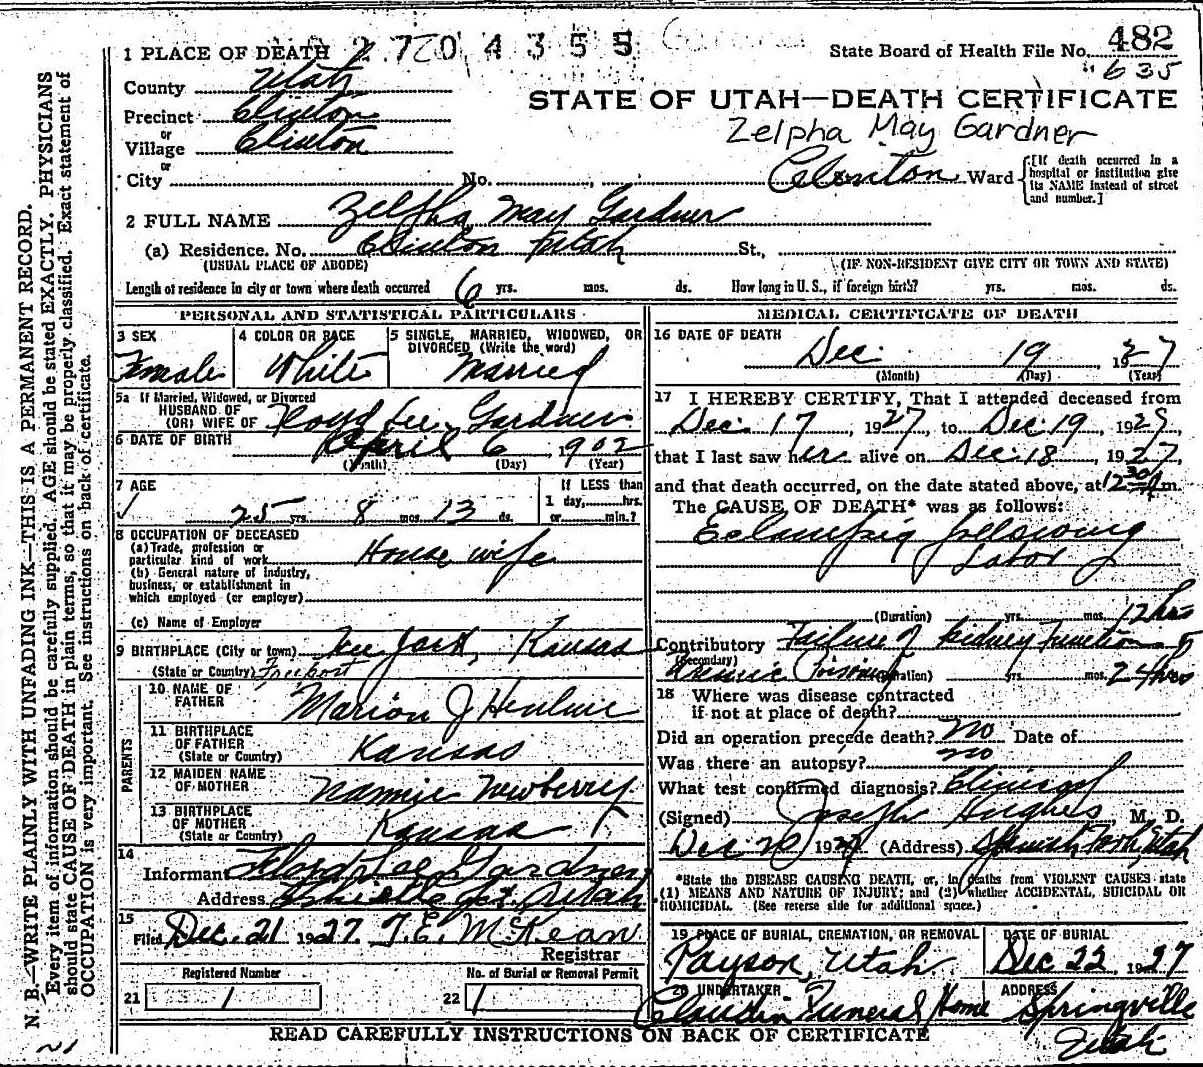 1 PLACE OF DEATH 2704355
State Board of Health File No. 482
635
County Utah
STATE OF UTAH—DEATH CERTIFICATE
Precinct Clinton
Zelpha May Gardner
or
Village Clinton
or
City No. Clinton Ward
[If death occurred in a hospital or institution give its NAME instead of street and number.]
2 FULL NAME Zelpha May Gardner
(a) Residence. No. Clinton Utah St.,
(USUAL PLACE OF ABODE) (IF NON-RESIDENT GIVE CITY OR TOWN AND STATE)
Length of residence in city or town where death occurred 6 yrs. mos. ds. How long in U. S., if foreign birth? yrs. mos. ds.
PERSONAL AND STATISTICAL PARTICULARS
3 SEX Female
4 COLOR OR RACE White
5 SINGLE, MARRIED, WIDOWED, OR DIVORCED (Write the word) Married
5a If Married, Widowed, or Divorced
HUSBAND OF
(OR) WIFE OF Lee Gardner
6 DATE OF BIRTH April 6 1902
(Month) (Day) (Year)
7 AGE
25 yrs. 8 mos. 13 ds.
If LESS than
1 day, hrs.
or min.?
8 OCCUPATION OF DECEASED
(a) Trade, profession or
particular kind of work House wife
(b) General nature of industry,
business, or establishment in
which employed (or employer)
(c) Name of Employer
9 BIRTHPLACE (City or town) Kansas
(State or Country) Freeport
PARENTS
10 NAME OF FATHER Marion J
11 BIRTHPLACE OF FATHER (State or Country) Kansas
12 MAIDEN NAME OF MOTHER Nannie Newberry
13 BIRTHPLACE OF MOTHER (State or Country) Kansas
14
Informant Lee Gardner
Address Utah
15
Filed Dec. 21 1927. T.E. McKean
Registrar
Registered Number
21 1
No. of Burial or Removal Permit
22 1
MEDICAL CERTIFICATE OF DEATH
16 DATE OF DEATH
Dec. 19 1927
(Month) (Day) (Year)
17 I HEREBY CERTIFY, That I attended deceased from
Dec. 17, 1927, to Dec. 19, 1927,
that I last saw her alive on Dec. 18, 1927,
and that death occurred, on the date stated above, at 12 30 A m.
The CAUSE OF DEATH* was as follows:
Eclampsia following
Labor
(Duration) yrs. mos. 12 hrs
Contributory Failure of kidney function
(Secondary) Uremic Poisoning (Duration) yrs. mos. 24 hrs
18 Where was disease contracted
if not at place of death?
Did an operation precede death? no Date of
Was there an autopsy? no
What test confirmed diagnosis? Clinical
(Signed) Joseph Hughes, M. D.
Dec 20 1927 (Address) Spanish Fork, Utah
*State the DISEASE CAUSING DEATH, or, in deaths from VIOLENT CAUSES state
(1) MEANS AND NATURE OF INJURY; and (2) whether ACCIDENTAL, SUICIDAL OR
HOMICIDAL. (See reverse side for additional space.)
19 PLACE OF BURIAL, CREMATION, OR REMOVAL
Payson, Utah
DATE OF BURIAL
Dec 22 1927
20 UNDERTAKER
Claudin Funeral Home
ADDRESS
Springville
Utah
READ CAREFULLY INSTRUCTIONS ON BACK OF CERTIFICATE
N. B.—WRITE PLAINLY WITH UNFADING INK—THIS IS A PERMANENT RECORD.
Every item of information should be carefully supplied. AGE should be stated EXACTLY. PHYSICIANS
should state CAUSE OF DEATH in plain terms, so that it may be properly classified. Exact statement of
OCCUPATION is very important. See instructions on back of certificate.